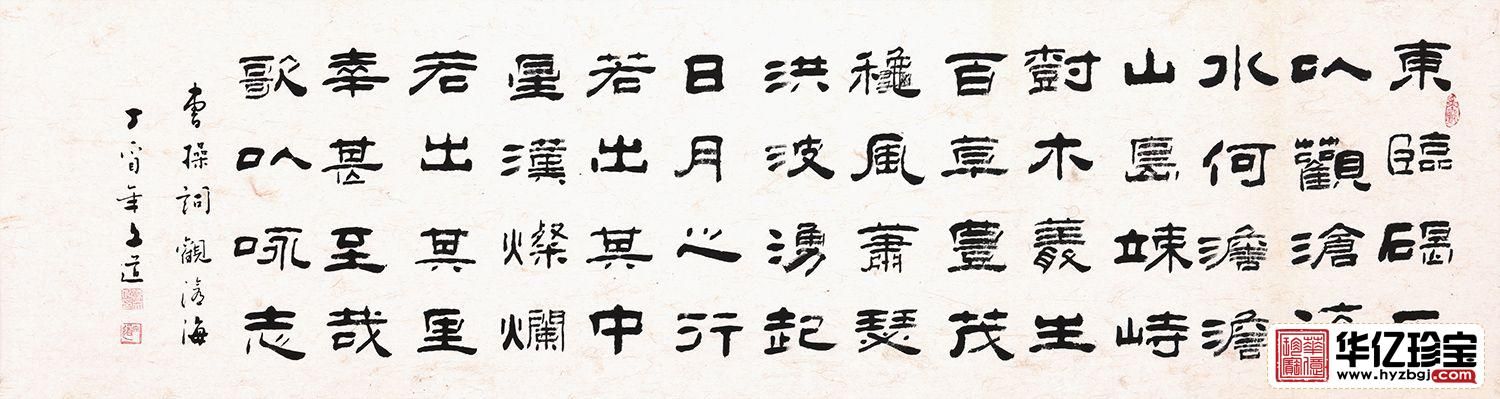 東臨碣石
以觀滄
水何澹澹
山島竦峙
樹木叢生
百草豐茂
龝風蕭瑟
洪波湧起
日月之行
若出其中
星漢燦爛
若出其里
幸甚至哉
歌以咏志
曹操詞觀滄海
丁酉年文道
华亿珍宝
www.hyzbgj.com